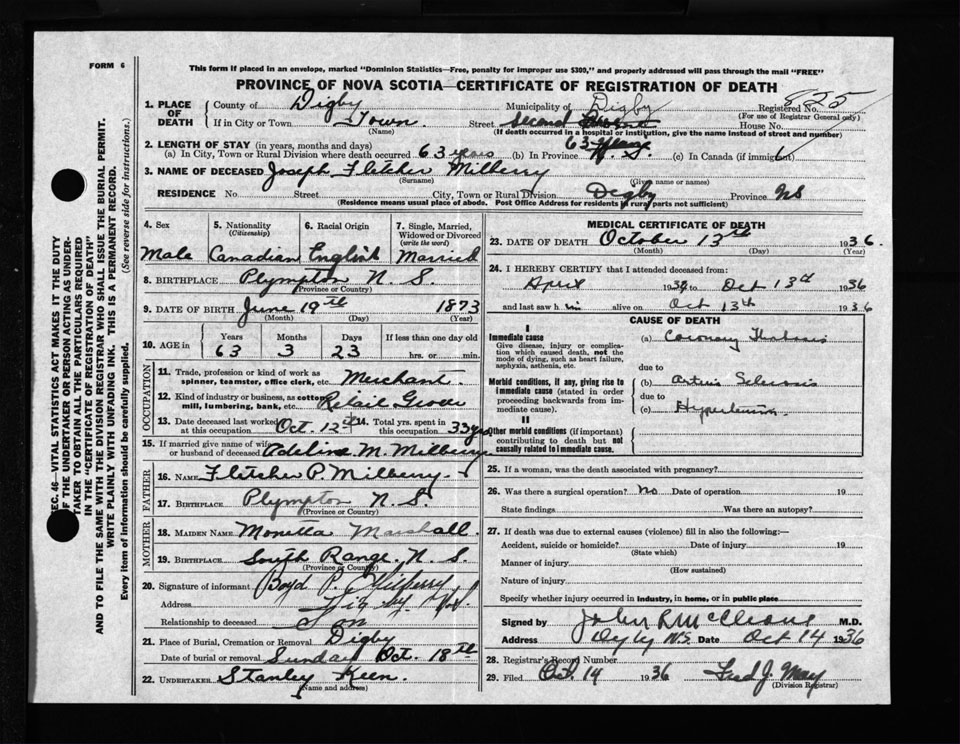 FORM 6
This form if placed in an envelope, marked "Dominion Statistics—Free, penalty for improper use $300," and properly addressed will pass through the mail "FREE"
PROVINCE OF NOVA SCOTIA—CERTIFICATE OF REGISTRATION OF DEATH
SEC. 46—VITAL STATISTICS ACT MAKES IT THE DUTY
OF THE UNDERTAKER OR PERSON ACTING AS UNDER-
TAKER TO OBTAIN ALL THE PARTICULARS REQUIRED
IN THE "CERTIFICATE OF REGISTRATION OF DEATH"
AND TO FILE THE SAME WITH THE DIVISION REGISTRAR WHO SHALL ISSUE THE BURIAL PERMIT.
WRITE PLAINLY WITH UNFADING INK. THIS IS A PERMANENT RECORD.
Every item of information should be carefully supplied. (See reverse side for instructions.)
1. PLACE OF DEATH County of Digby Municipality of Digby Registered No. 825
(For use of Registrar General only)
If in City or Town Town Street Second House No.
(Name) (If death occurred in a hospital or institution, give the name instead of street and number)
2. LENGTH OF STAY (in years, months and days)
(a) In City, Town or Rural Division where death occurred 63 years (b) In Province 63 years N. S. (c) In Canada (if immigrant)
3. NAME OF DECEASED Joseph Fletcher Milberry
(Surname) (Give name or names)
RESIDENCE No Street City, Town or Rural Division Digby Province NS
(Residence means usual place of abode. Post Office Address for residents in rural parts not sufficient)
4. Sex 5. Nationality (Citizenship) 6. Racial Origin 7. Single, Married, Widowed or Divorced (write the word)
Male Canadian English Married
8. BIRTHPLACE Plympton N. S.
(Province or Country)
9. DATE OF BIRTH June 19th 1873
(Month) (Day) (Year)
10. AGE in Years Months Days If less than one day old
63 3 23 hrs. or min.
OCCUPATION
11. Trade, profession or kind of work as spinner, teamster, office clerk, etc. Merchant
12. Kind of industry or business, as cotton mill, lumbering, bank, etc. Retail Grocer
13. Date deceased last worked at this occupation Oct. 12th 14. Total yrs. spent in this occupation 33 yrs
15. If married give name of wife or husband of deceased Adeline M. Milberry
FATHER
16. NAME Fletcher P. Milberry
17. BIRTHPLACE Plympton N. S.
(Province or Country)
MOTHER
18. MAIDEN NAME Monetta Marshall
19. BIRTHPLACE South Range, N. S.
(Province or Country)
20. Signature of informant Boyd P. Milberry
Address Digby N.S.
Relationship to deceased Son
21. Place of Burial, Cremation or Removal Digby
Date of burial or removal Sunday Oct. 18th
22. UNDERTAKER Stanley Keen
(Name and address)
MEDICAL CERTIFICATE OF DEATH
23. DATE OF DEATH October 13th 1936.
(Month) (Day) (Year)
24. I HEREBY CERTIFY that I attended deceased from:
April to Oct 13th 1936
and last saw him alive on Oct 13th 1936
CAUSE OF DEATH
I
Immediate cause
Give disease, injury or complication which caused death, not the mode of dying, such as heart failure, asphyxia, asthenia, etc.
(a) Coronary Thrombosis
due to
Morbid conditions, if any, giving rise to immediate cause (stated in order proceeding backwards from immediate cause).
(b) Arterio Sclerosis
due to
(c) Hypertension
II
Other morbid conditions (if important) contributing to death but not causally related to immediate cause.
25. If a woman, was the death associated with pregnancy?
26. Was there a surgical operation? No Date of operation 19
State findings Was there an autopsy?
27. If death was due to external causes (violence) fill in also the following:—
Accident, suicide or homicide? Date of injury 19
(State which)
Manner of injury
(How sustained)
Nature of injury
Specify whether injury occurred in industry, in home, or in public place
Signed by John R McCleave M.D.
Address Digby N.S. Date Oct 14 1936
28. Registrar's Record Number
29. Filed Oct. 14 1936 Fred J. May
(Division Registrar)